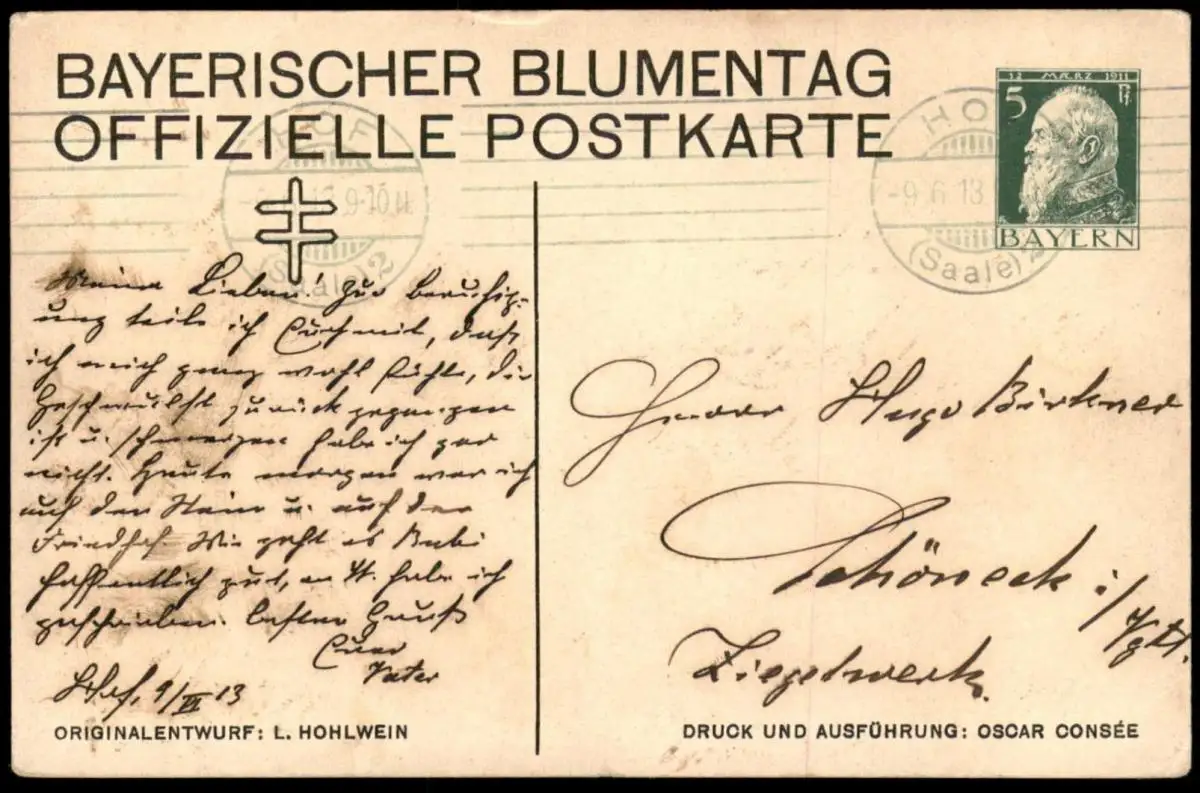 BAYERISCHER BLUMENTAG
OFFIZIELLE POSTKARTE
12 MÆRZ 1911
5 Pf.
BAYERN
HOF
9-10 N
(Saale) 2
HOF
-9.6.13
(Saale) 2
Meine Lieben! Zur Beruhig-
ung teile ich Euch mit, daß
ich mich ganz wohl fühle, die
Geschwulst zurück gegangen
ist u. schmerzen habe ich gar
nicht. Heute morgen war ich
auf den Stein u. auf den
Friedhof. Wie geht es Bubi
hoffentlich gut, an H. habe ich
geschrieben. besten Gruß
Euer
Vater
Hof, 9/VI 13
Herrn Hugo Birkner
Schöneck i/Vgtl.
Ziegelwerk.
ORIGINALENTWURF: L. HOHLWEIN
DRUCK UND AUSFÜHRUNG: OSCAR CONSÉE